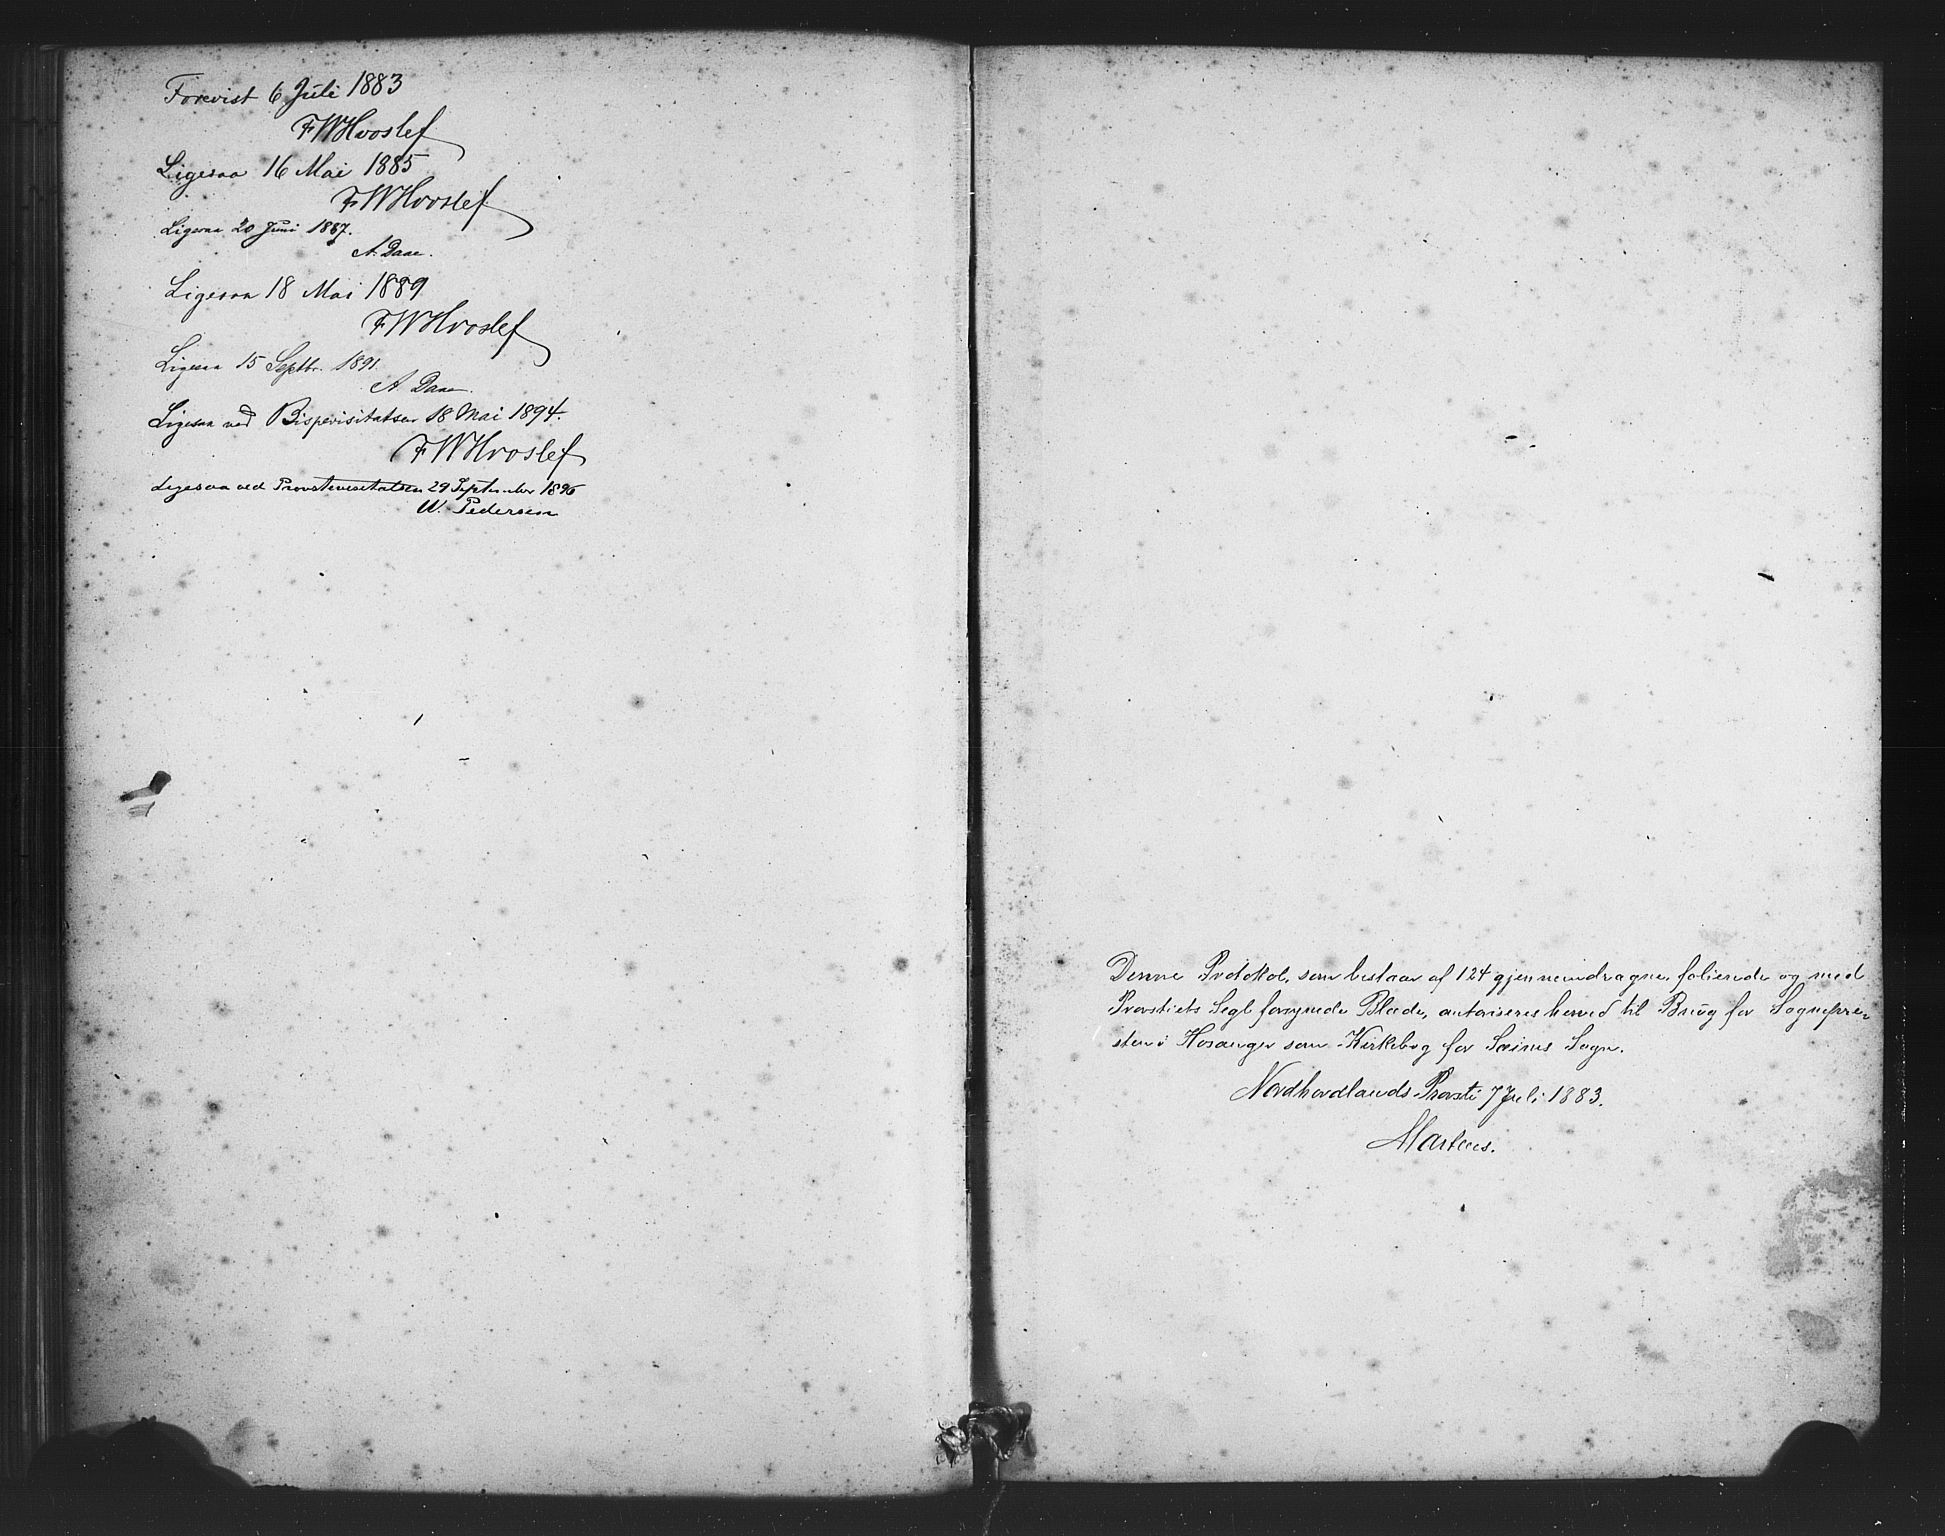 Forevist 6 Juli 1883
FWHvoslef
Ligesaa 16 Mai 1885
FWHvoslef
Ligesaa 20 Juni 1887.
A. Daae.
Ligesaa 18 Mai 1889
FWHvoslef
Ligesaa 15 Septbr. 1891.
A. Daae.
Ligesaa ved Bispevisitatsen 18 Mai 1894.
FWHvoslef
Ligesaa ved Provstevisitatsen 29 September 1896
W. Pedersen
Denne Protokol, som bestaar af 124 gjennemdragne, folierede og med
Provstiets Segl forsynede Blade, autoriseres herved til Brug for Sognepre-
sten i Hosanger som Kirkebog for Sæims Sogn.
Nordhordlands Provsti 7 Juli 1883.
Martens.